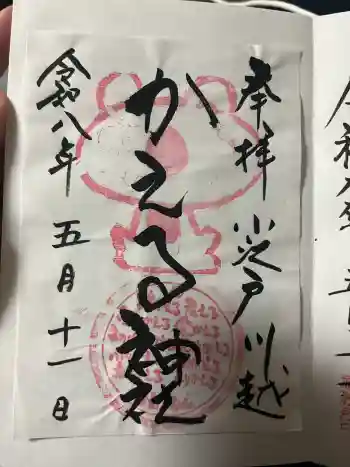 奉拝 小江戸川越
かえる神社
令和八年五月十一日